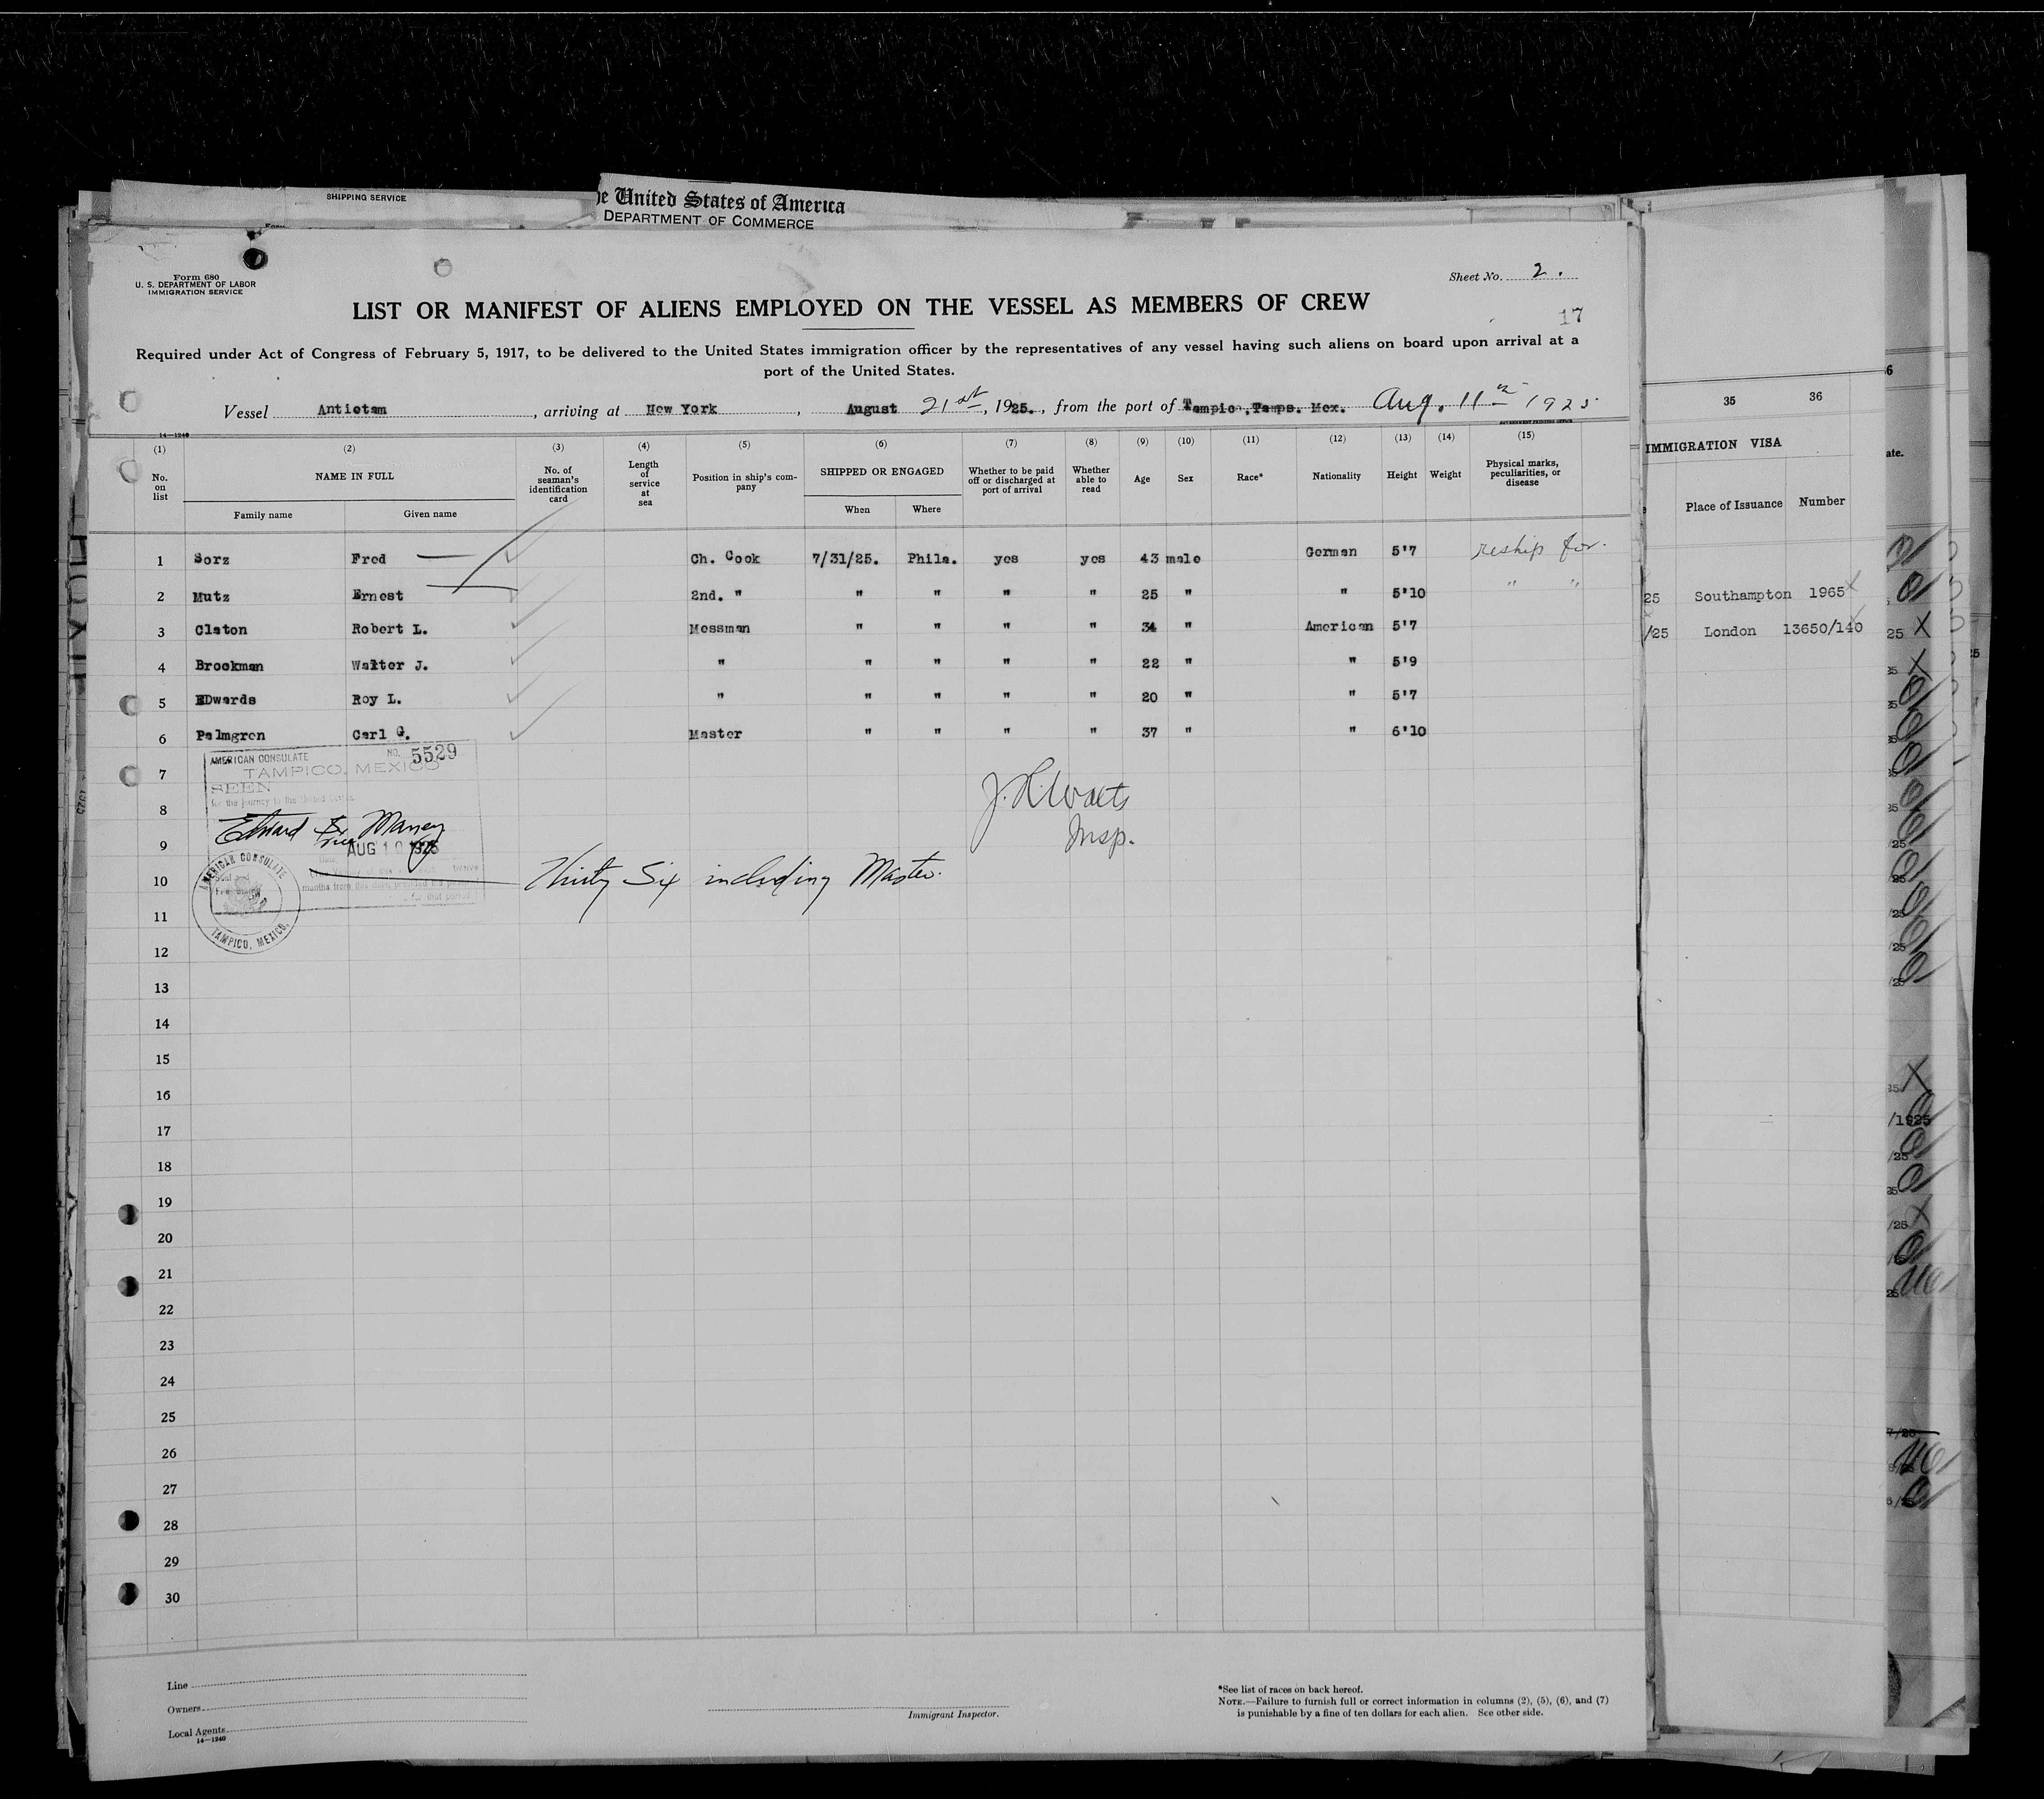 SHIPPING SERVICE
e United States of America
DEPARTMENT OF COMMERCE
Form 680
U. S. DEPARTMENT OF LABOR
IMMIGRATION SERVICE
Sheet No. 2.
LIST OR MANIFEST OF ALIENS EMPLOYED ON THE VESSEL AS MEMBERS OF CREW
17
Required under Act of Congress of February 5, 1917, to be delivered to the United States immigration officer by the representatives of any vessel having such aliens on board upon arrival at a
port of the United States.
Vessel Antietam, arriving at New York, August 21st, 1925., from the port of Tampico, Tamps. Mex. Aug. 11th 1925
14—1240
GOVERNMENT PRINTING OFFICE
(1) (2) (3) (4) (5) (6) (7) (8) (9) (10) (11) (12) (13) (14) (15)
No. on list
NAME IN FULL
Family name
Given name
No. of seaman's identification card
Length of service at sea
Position in ship's company
SHIPPED OR ENGAGED
When
Where
Whether to be paid off or discharged at port of arrival
Whether able to read
Age
Sex
Race*
Nationality
Height
Weight
Physical marks, peculiarities, or disease
1 Sorz Fred Ch. Cook 7/31/25. Phila. yes yes 43 male German 5'7 reship for.
2 Mutz Ernest 2nd. " " " " " 25 " " 5'10 " "
3 Claton Robert L. Messman " " " " 34 " American 5'7
4 Brookman Walter J. " " " " " 22 " " 5'9
5 EDwards Roy L. " " " " " 20 " " 5'7
6 Palmgren Carl G. Master " " " " 37 " " 6'10
7
8
9
10
11
12
13
14
15
16
17
18
19
20
21
22
23
24
25
26
27
28
29
30
AMERICAN CONSULATE NO. 5529
TAMPICO, MEXICO
SEEN
for the journey to the United States
Edward Maney
AUG 10 1925
months from this date, provided the
for that period
AMERICAN CONSULATE
TAMPICO, MEXICO.
J. R. Watts
Insp.
Thirty Six including Master.
Line
Owners
Local Agents
14—1240
Immigrant Inspector.
*See list of races on back hereof.
NOTE.—Failure to furnish full or correct information in columns (2), (5), (6), and (7)
is punishable by a fine of ten dollars for each alien. See other side.
35 36
IMMIGRATION VISA
Place of Issuance Number
25 Southampton 1965
/25 London 13650/140
6
ate.